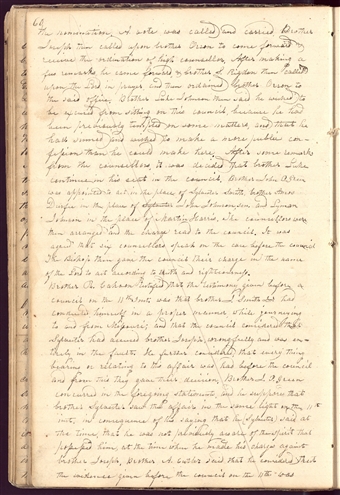 60
the nomination, A vote was called and carried. Brother
Joseph then called upon brother Orson to come forward &
receive the ordination of high councellor. After making a
few remarks he came forward & brother S. Rigdon then called
upon the Lord in prayer and then ordained brother Orson to
the said office, Brother Luke Johnson then said he wished to
be excused from sitting on this council because he had
been previously tempted on some matters, and that he
had sinned and wished to make a more public con-
fession than he could make here, After some remarks
from the councellors, it was decided that brother Luke
continue in his seat in the council. Brother John P. Green
was appointed to set in the place of Sylvester Smith, brother Amos
Durfee in the place of John Johnson, and Lyman
Johnson in the place of Martin Harris. The councellors were
then arranged and the charge read to the council. It was
agreed that six councellors speak on the case before the council
The Bishop then gave the council their charge in the name
of the Lord to act according to truth and righteousness.
Brother R. Cahoon testified that the testimony given before a
council on the 11th Inst. was that brother J. Smith Jr had
conducted himself in a proper manner while journeying
to and from Missouri; and that the council considered that
Sylvester had accused brother Joseph wrongfully and was en-
tirely in the fault. He further considered that every thing
bearing or relating to the affair was had before the council
and from this they gave their decision, Brother J. P. Green
concurred in the foregoing statements, and he supposed that
brother Sylvester saw the affair in the same light on the 11th
inst; in consequence of his saying that he (Sylvester) said at
the time, that he was not probably aware of the spirit that
possessed him, at the time when he made his charge against
brother Joseph. Brother A. said that he considered that
the evidence given before the council on the 11th was